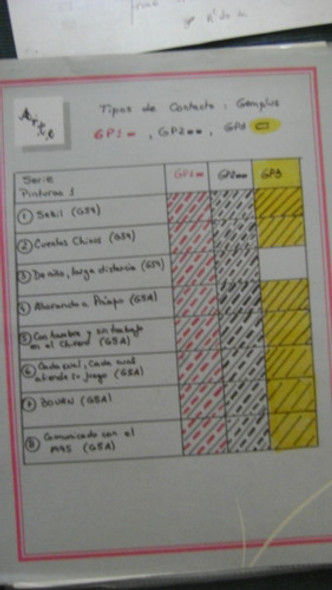 Arte
Tipos de Contacto : Gemplus
GP1 , GP2 , GP3
Serie
Pinturas 1
GP1 GP2 GP3
① Sabil (GS4)
② Cuentos Chinos (GS4)
③ De niño, larga distancia (GS4)
④ Ahorrando a (GSA)
⑤ Con hambre y sin trabajo
en el (GSA)
⑥ Cada cual, Cada cual
atiende su juego (GSA)
⑦ (GSA)
⑧ Comunicado con el
1995 (GSA)